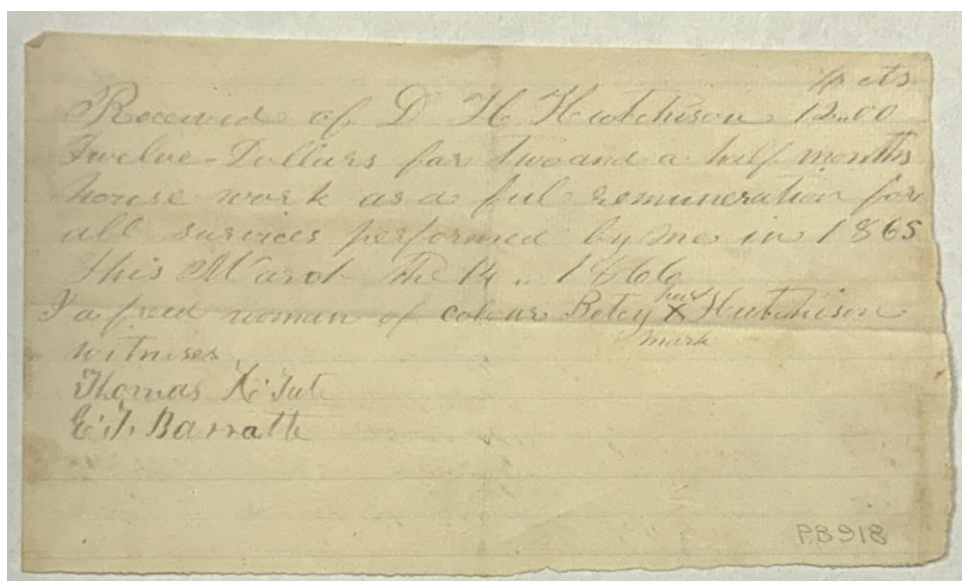 $ cts
Received of D H Hutchison 12..00
Twelve-Dollars for two and a half months
house work as a ful remuneration for
all survices performed by me in 1865
This March the 14 .. 1866
I a freed woman of colour Betey her X Hutchison
mark
witneses
Thomas
E. T. Barratte
PB918